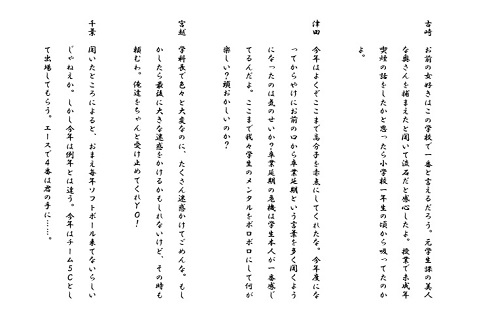 吉崎　お前の女好きはこの学校で一番と言えるだろう。元学生課の美人
な奥さんを捕まえたと聞いて流石だと感心したよ。授業で未成年
喫煙の話をしたかと思ったら小学校一年生の頃から吸ってたのか
よ。
津田　今年はよくぞここまで高分子を赤点にしてくれたな。今年度にな
ってからやけにお前の口から卒業延期という言葉を多く聞くよう
になったのは気のせいか？卒業延期の危機は学生本人が一番感じ
てるんだよ。ここまで我々学生のメンタルをボロボロにして何が
楽しい？頭おかしいのか？
宮越　学科長で色々と大変なのに、たくさん迷惑かけてごめんな。もし
かしたら最後に大きな迷惑をかけるかもしれないけど、その時も
頼むわ。俺達をちゃんと受け止めてくれYO！
千葉　聞いたところによると、おまえ毎年ソフトボール来てないらしい
じゃねえか。しかし今年は例年とは違う。今年はチーム5Cとし
て出場してもらう。エースで4番は君の手に……。